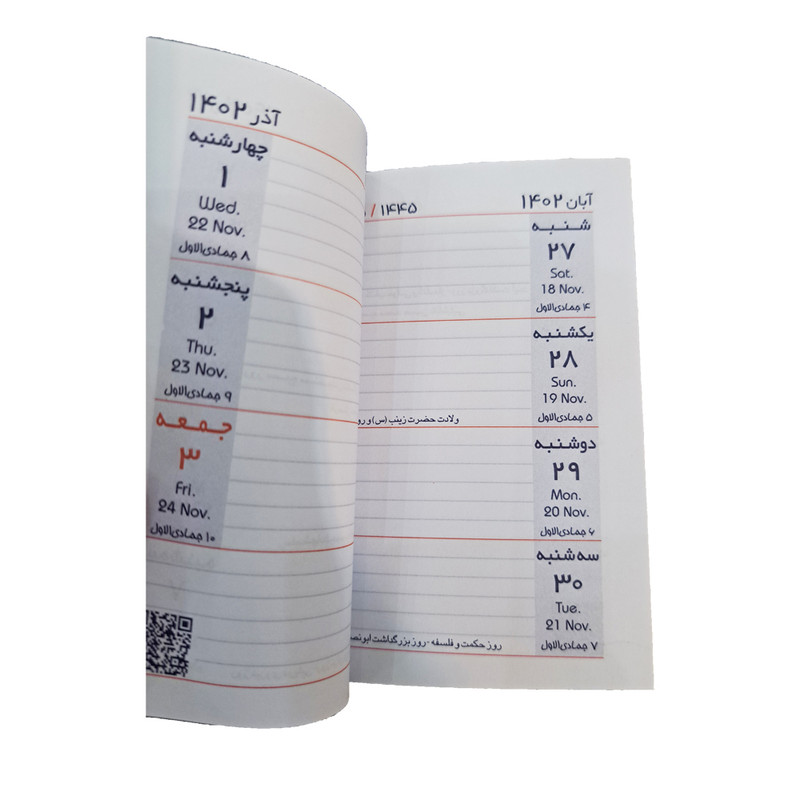 آبان ۱۴۰۲
/ ۱۴۴۵
شنبه
۲۷
Sat.
18 Nov.
۴ جمادی‌الاول
یکشنبه
۲۸
Sun.
19 Nov.
۵ جمادی‌الاول
ولادت حضرت زینب (س) و رو
دوشنبه
۲۹
Mon.
20 Nov.
۶ جمادی‌الاول
سه شنبه
۳۰
Tue.
21 Nov.
۷ جمادی‌الاول
روز حکمت و فلسفه - روز بزرگداشت ابونص
آذر ۱۴۰۲
چهارشنبه
۱
Wed.
22 Nov.
۸ جمادی‌الاول
پنجشنبه
۲
Thu.
23 Nov.
۹ جمادی‌الاول
جمعه
۳
Fri.
24 Nov.
۱۰ جمادی‌الاول